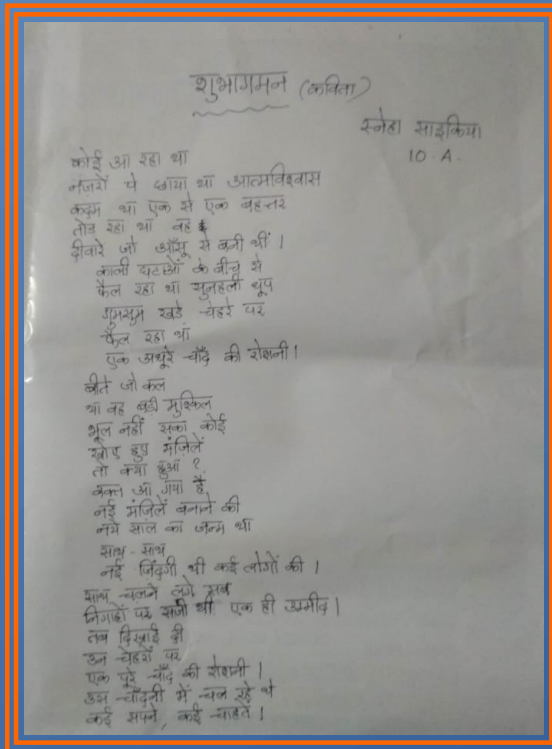 शुभागमन (कविता)
स्नेहा साइकिया
10-A.
कोई आ रहा था
नजरों पे छाया था आत्मविश्वास
कदम था एक से एक बहत्तर
तोड रहा था वह
दीवारे जो आँसू से बनी थीं।
काली घटाओं के बीच से
फैल रहा था सुनहली धूप
गुमसुम खडे चेहरे पर
फैल रहा था
एक अधूरे चाँद की रोशनी।
बीते जो कल
था वह बडी मुश्किल
भूल नहीं सका कोई
खोए हुए मंज़िलें
तो क्या हुआ ?
वक्त आ गया है
नई मंजिलें बनाने की
नये साल का जन्म था
साथ-साथ
नई जिंदगी थी कई लोगों की।
साथ चलने लगे सब
निगाहों पर सजी थी एक ही उम्मीद।
तब दिखाई दी
उन चेहरों पर
एक पूरे चाँद की रोशनी।
उस चाँदनी में चल रहे थे
कई सपने, कई चाहतें।